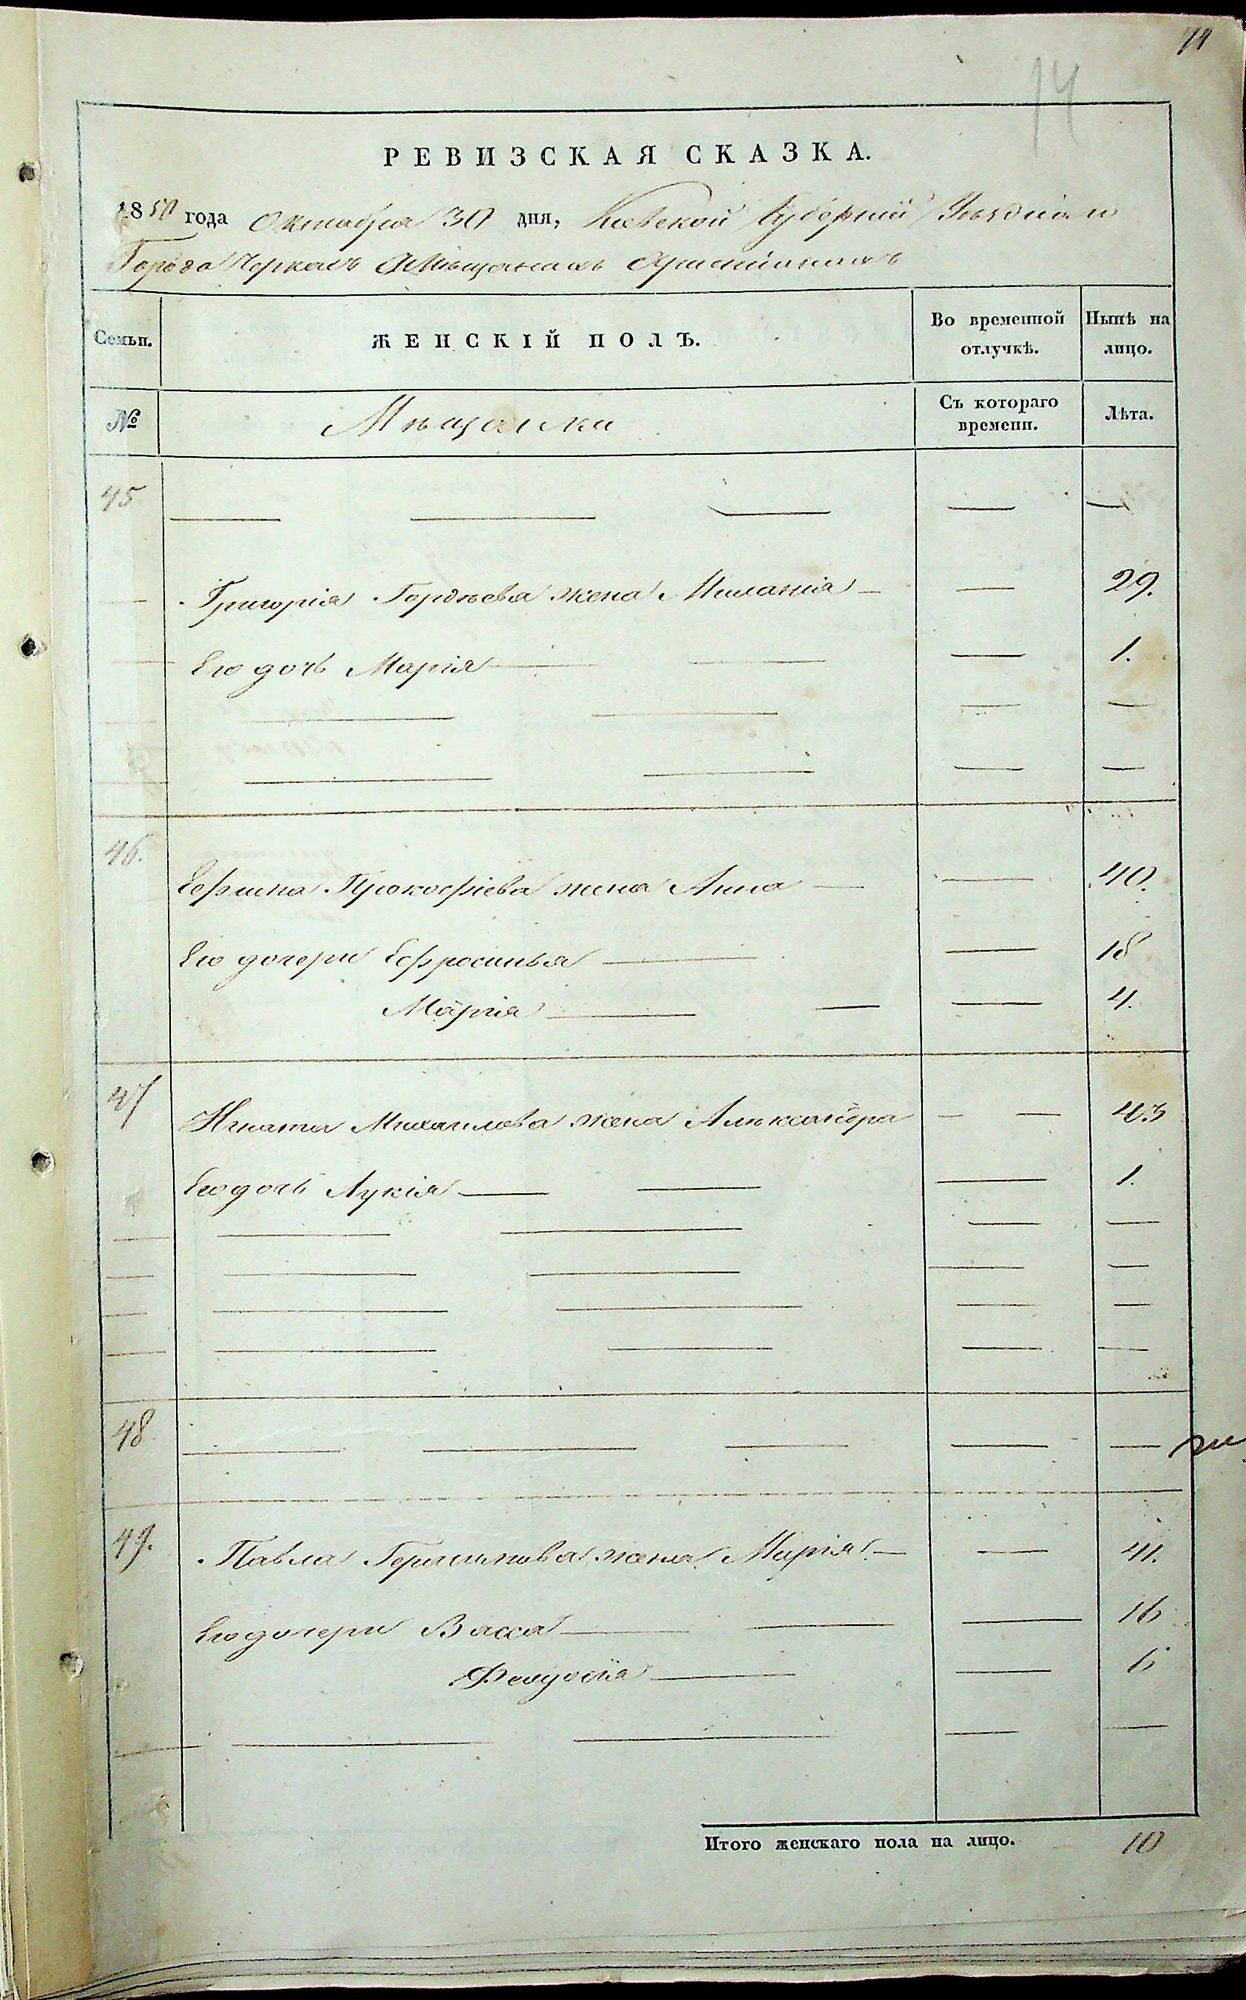 14
14
РЕВИЗСКАЯ СКАЗКА.
1850 года Октября 30 дня, Киевской Губернии Уѣзднаго
Города Черкасъ О Мѣщанахъ Християнахъ
Семьи. ЖЕНСКІЙ ПОЛЪ. Во временной отлучкѣ. Нынѣ на лицо.
№ Мѣщанки Съ котораго времени. Лѣта.
45
Григорія Гордѣева жена Миланія 29.
Его дочь Марія 1.
46.
Ефима Прокофіева жена Анна 40.
Его дочери Ефросинья 18
Марія 4.
47
Игната Михайлова жена Александра 43
Его дочь Лукія 1.
48
49.
Павла Герасимова жена Марія 41.
Его дочери Васса 16
Феодосія 6
Итого женскаго пола на лицо. 10